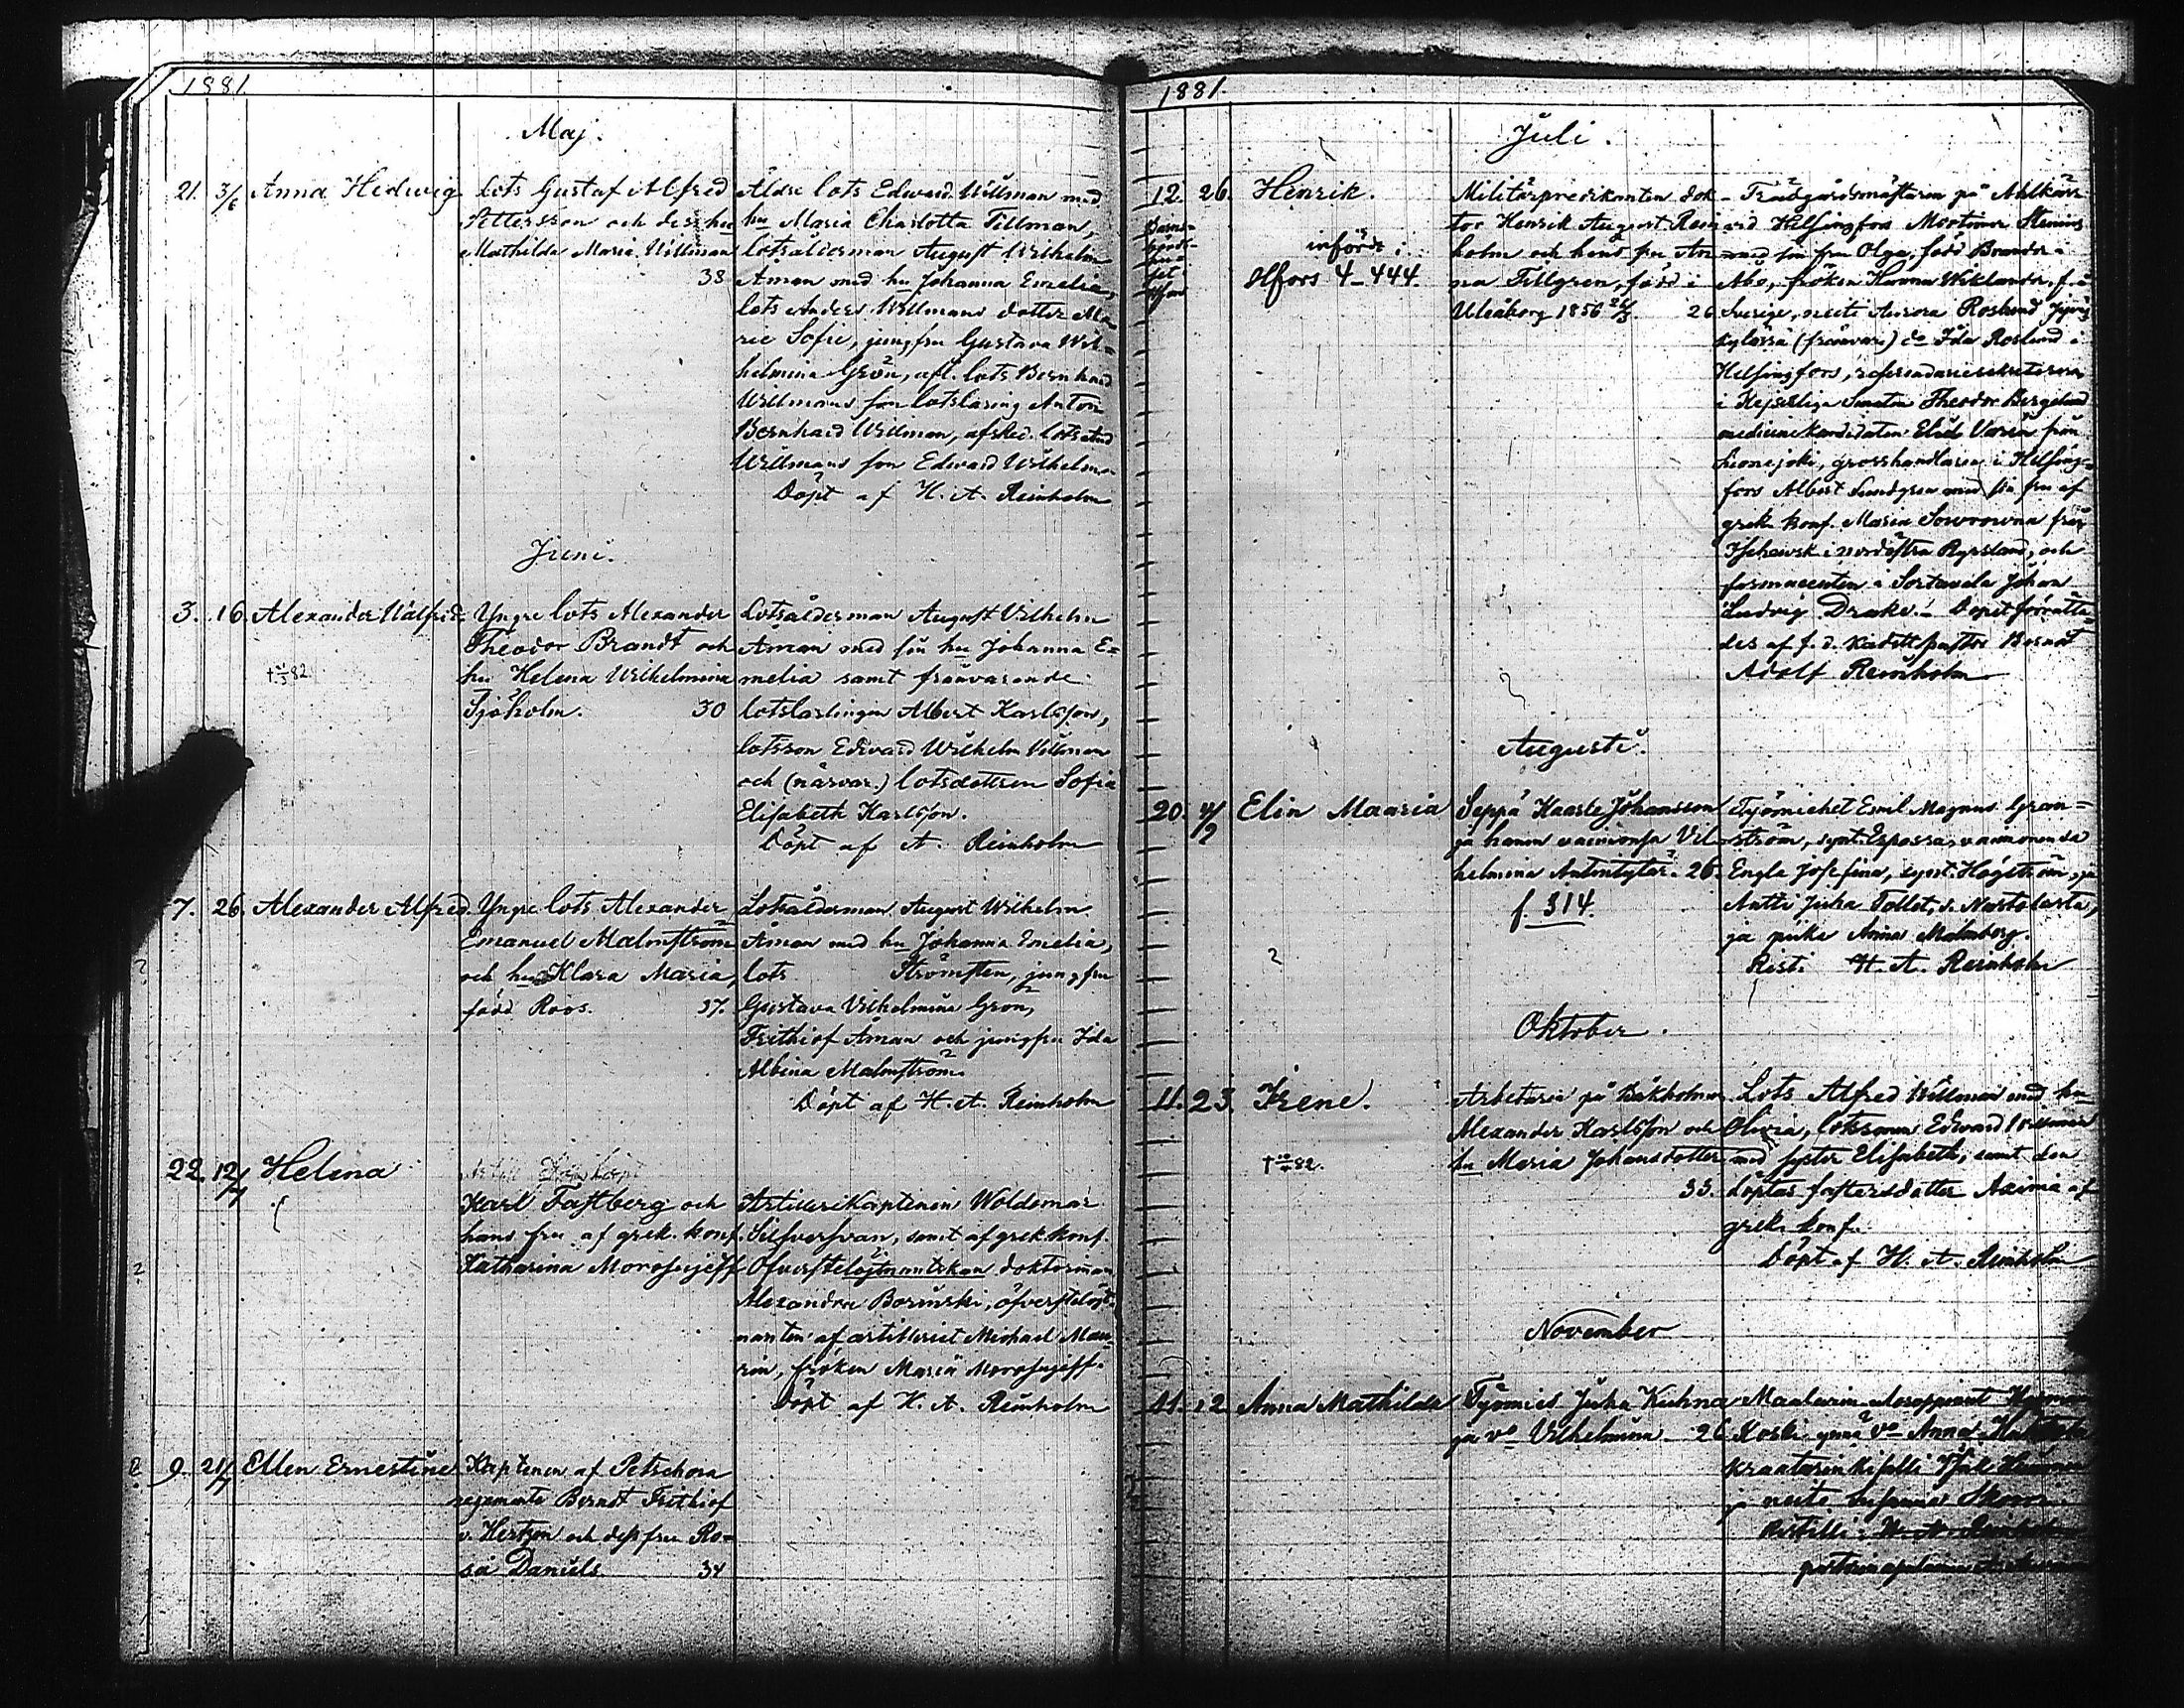 1881
Maj.
21. 3/6 Anna Hedwig
Lots Gustaf Alfred
Pettersson och des hu
Mathilda Maria Willman
38
Äldre lots Edward Willman med
hu Maria Charlotta Tillman,
lotsålderman August Wilhelm
Åman med hu Johanna Emelia,
lots Anders Willmans dotter Ma
rie Sofie, jungfru Gustava Wil=
helmina Grön, afl. lots Bernhard
Willmans son lotslärling Anton
Bernhard Willman, afsked. lots
Willmans son Edward Wilhelm
Döpt af H. A. Reinholm
Juni.
3. 16. Alexander Walfrid
82
Yngre lots Alexander
Theodor Brandt och
hu Helena Wilhelmina
Sjöholm. 30
Lotsålderman August Vilhelm
Åman med sin hu Johanna E=
melia samt frånvarande
lotslärlingen Albert Karlsson,
lotsson Edward Wilhelm Villman
och (närvar.) lotsdottren Sofia
Elisabeth Karlsson.
Döpt af A. Reinholm
7. 26. Alexander Alfred.
Yngre lots Alexander
Emanuel Malmström
och hu Klara Maria,
född Roos. 37.
Lotsålderman August Wilhelm
Åman med hu Johanna Emelia,
lots Strömsten, jungfru
Gustava Vilhelmina Grön,
Frithiof Åman och jungfru Ida
Albina Malmström
Döpt af H. A. Reinholm
22. 12/7 Helena
Karl Fastberg och
hans fru af grek. konf.
Katharina Morosejeff
Artillerikaptenen Woldemar
Silfversvan, samt af grek konf.
Öfverstelöjtnantskan doktorinnan
Alexandra Borinski, öfverstelöjt-
nanten af artilleriet Michael Mau
rin, fröken Maria Morosejeff.
Döpt af H. A. Reinholm
9. 21/7 Ellen Ernestine
Kaptenen af Petschora
regemente Berndt Frithiof
v. Hertzen och dess fru Ro=
sa Daniels. 34
1881.
Juli.
12. 26. Henrik.
införd i
Hfors 4-444.
Militärpredikanten dok-
tor Henrik August Rein
holm och hans fru An
na Tillgren, född i
Uleåborg 1856 26
Trädgårdsmästaren på Ahlkärr
vid Helsingfors Mortimer Stenius
med sin fru Olga, född Brander i
Åbo, fröken Hanna Wiklander, f. i
Sverige, neiti Aurora Roslund
kylässä (frånvar.) do Ida Roslund i
Helsingfors, referendariesekreteraren
i Kejserliga Senaten Theodor Bergelund
medicinekandidaten Elid Varén från
grosshandlaren i Helsing=
fors Albert Lundgren med sin fru af
grek konf. Maria från
i nordöstra Ryssland, och
farmaceuten i Sortavala Johan
Ludvig Drake. Dopet förrätta=
des af f. d. Kadettpastor Berndt
Adolf Reinholm
Augusti.
20. 4/9 Elin Maaria
Seppä Kaarle Johansson
ja hänen vaimonsa Vil
helmina Antintytär. 26.
f. 314.
Työmiehet Emil Magnus Gran=
ström, synt. Espossa, vaimonensa
Engla Josefina, synt. Högström, ja
Antti Juha Tallet,
ja piika Anna Malmberg.
Risti H. A. Reinholm
Oktober.
11. 23. Irene.
82.
Arbetaren på Bakholmen
Alexander Karlsson och
hu Maria Johansdotter
33.
Lots Alfred Willman med hu
Olivia, lotssonen Edward Willman
med syster Elisabeth, samt den
döptas fastersdotter Axinia af
grek. konf.
Döpt af H. A. Reinholm
November
11. 12 Anna Mathilda
Työmies Juha Kuhna
ja vo Vilhelmina 26
Koski ynnä vo Anna
ja neiti Susanna